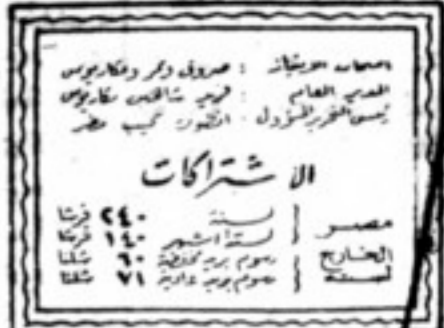 اصحاب الامتياز : صروف ونمر ومكاريوس
المدير العام : فريد شاهين مكاريوس
رئيس التحرير المسؤول : انطون نجيب مطر
الاشتراكات
مصر
لسنة ٢٤٠ قرشا
لستة اشهر ١٤٠ قرشا
الخارج لسنة
رسوم بريد مخفضة ٦٠ شلنا
رسوم بريد عادية ٧١ شلنا